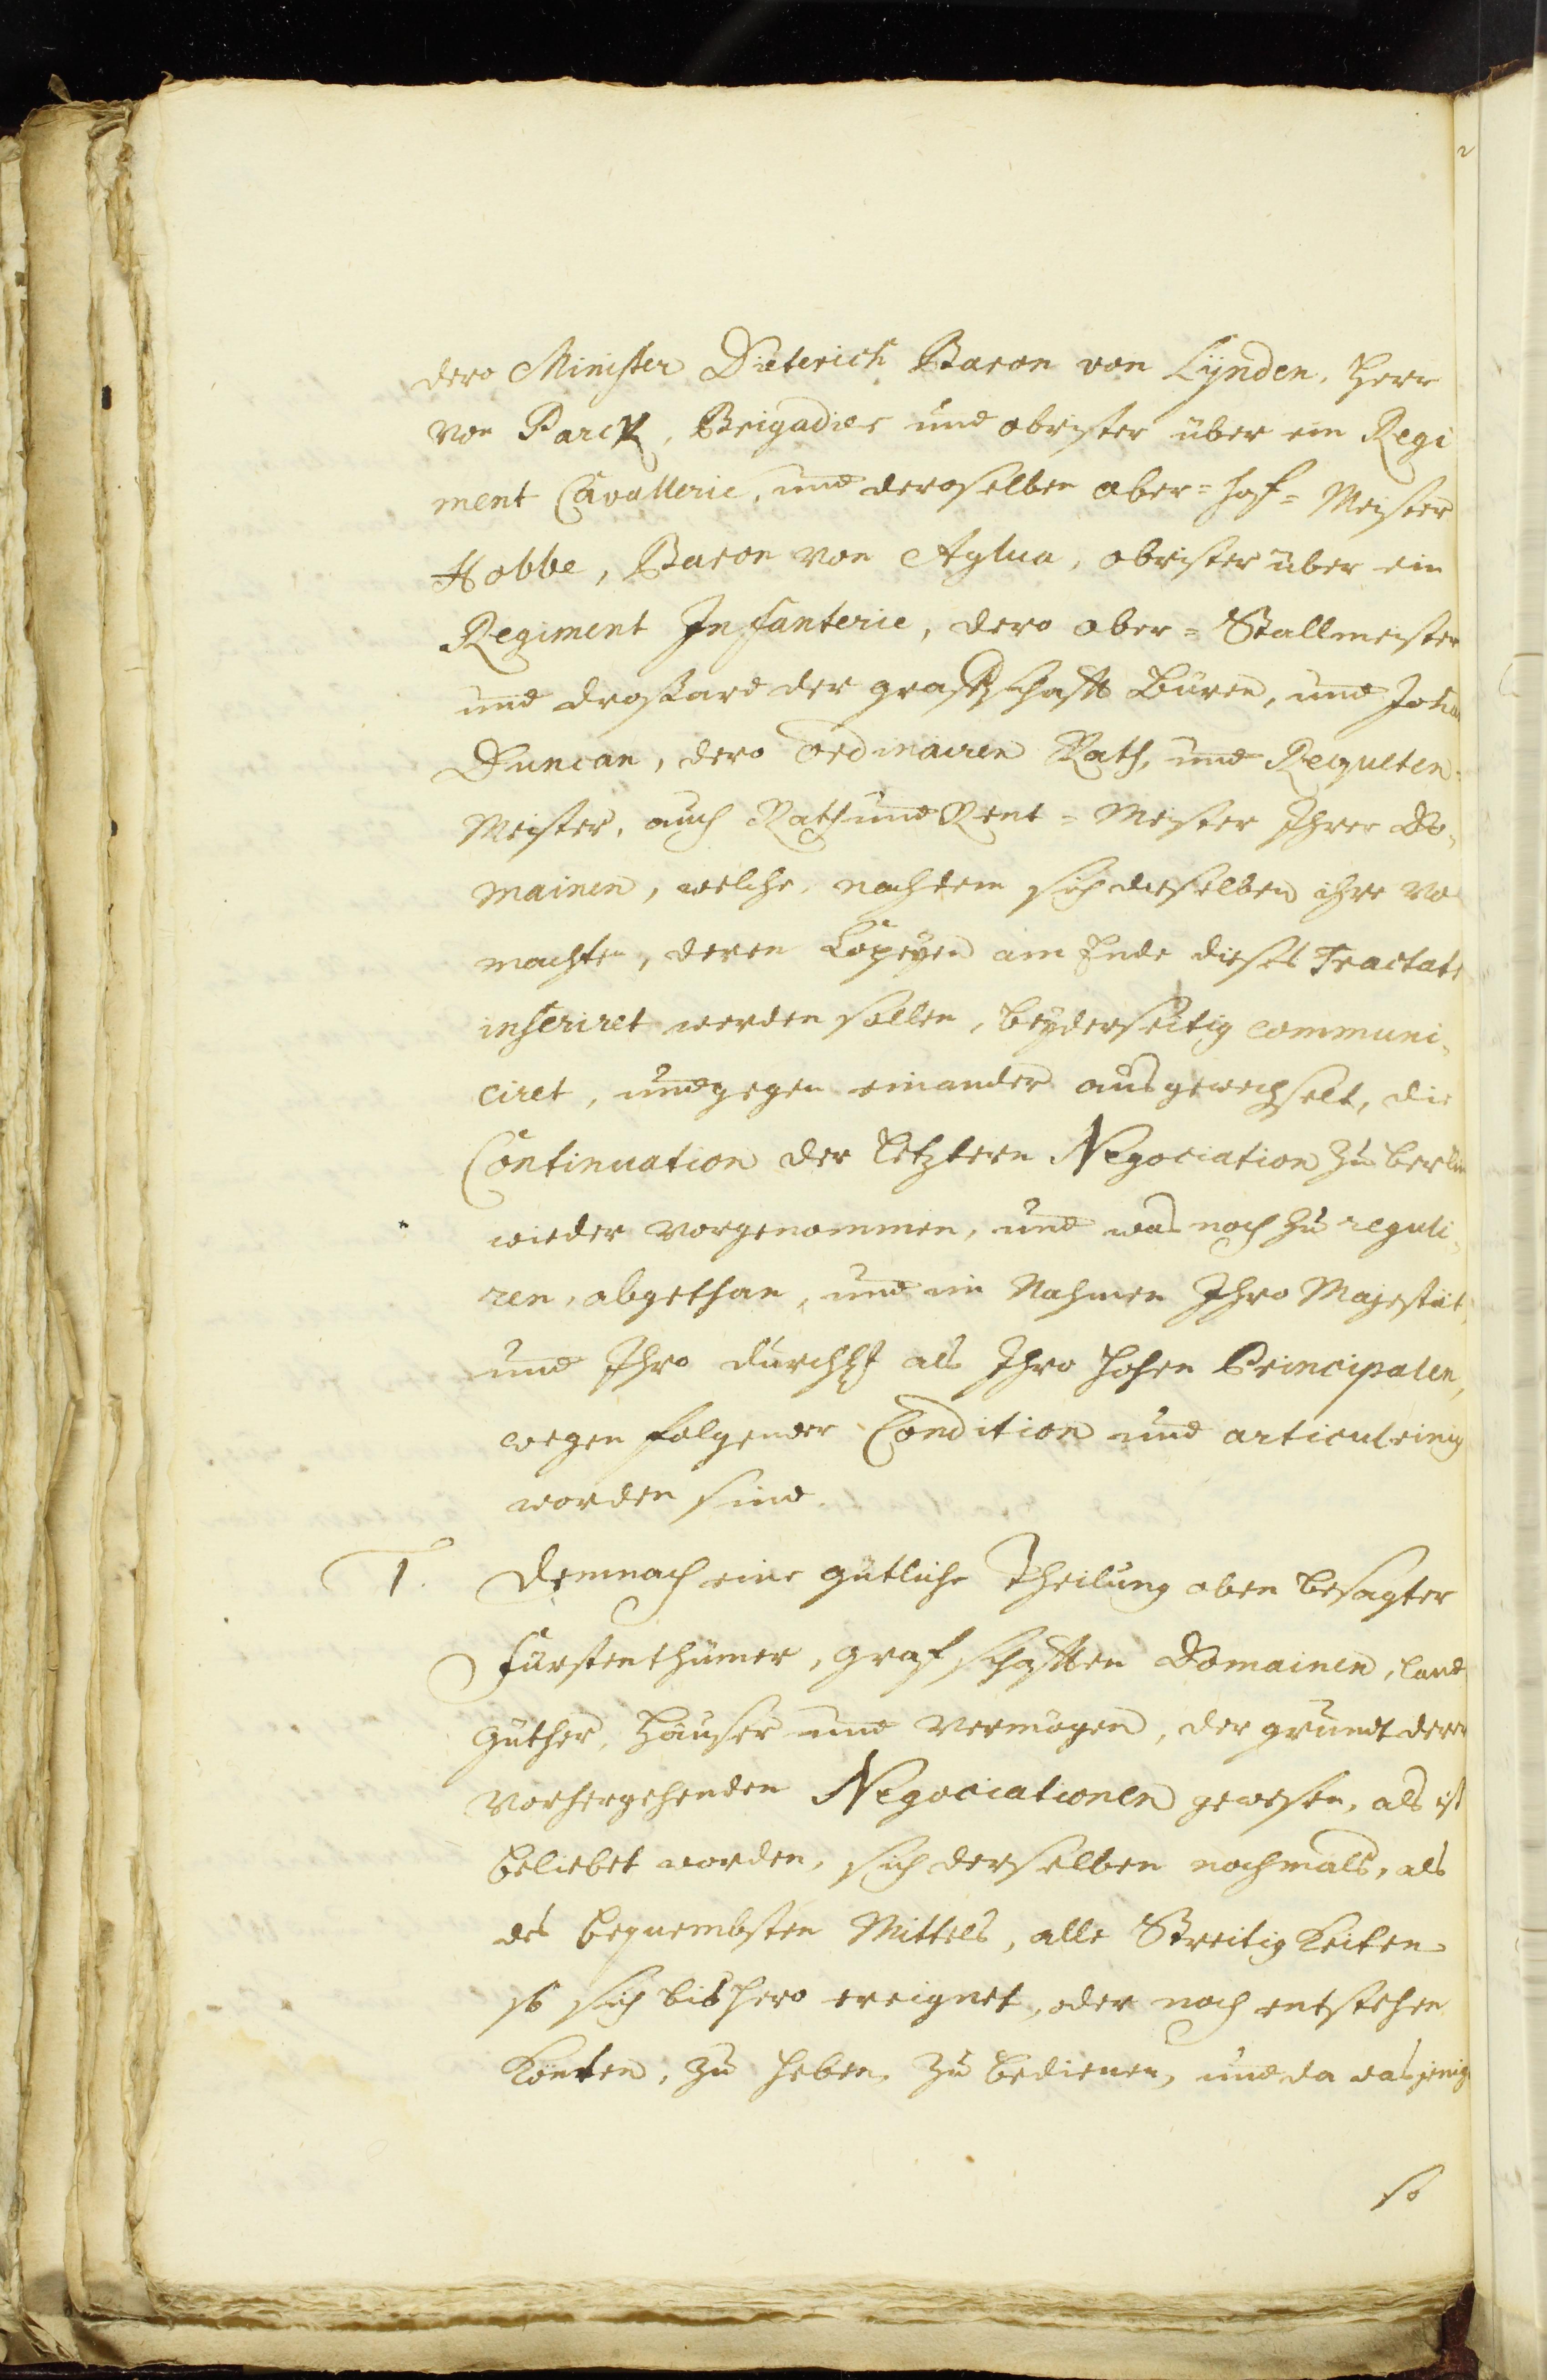 2
dero Minister Dieterich Baron von Lÿnden, Herr
von Parck, Brigadier und obrister über ein Regi
ment Cavallerie, und deroselben ober=hof=Meister
Hobbe, Baron von Aylua, obrister über ein
Regiment Infanterie, dero ober=Stallmeister
und drossard der graffschafft Büren, und Johan
Duncan, dero ordinairen Rath, und Requeten
Meister, auch Rath und Rent=Meister Ihrer Do,
mainen, welche, nachdem sich dieselben ihre vo
machten, deren Copeyen am Ende dieses Tractats
inseriret werden sollen, beyderseitig communi,
ciret, und gegen einander ausgewechselt, die
Continuation der letztern Negociation zu berlin
wieder vorgenommen, und was noch zu reguli,
ren, abgethan, und im Nahmen Ihro Majestät,
und Ihro durchlt als Ihro hohen Principalen,
wegen folgender Condition und articul einig
worden sind.
1. Demnach eine gütliche Theilung oben besagter
Fürstenthümer, grafschafften Domainen, land
güther, häuser und vermögen, der grundt derer
vorhergehenden Negociationen gewesen, als ist
beliebet worden, sich derselben nochmals, als
des bequembsten Mittels, alle Streitigkeiten
so sich bishero ereignet, oder noch entstehen
könten, zu heben, zu bedienen, und da dasjenige
so